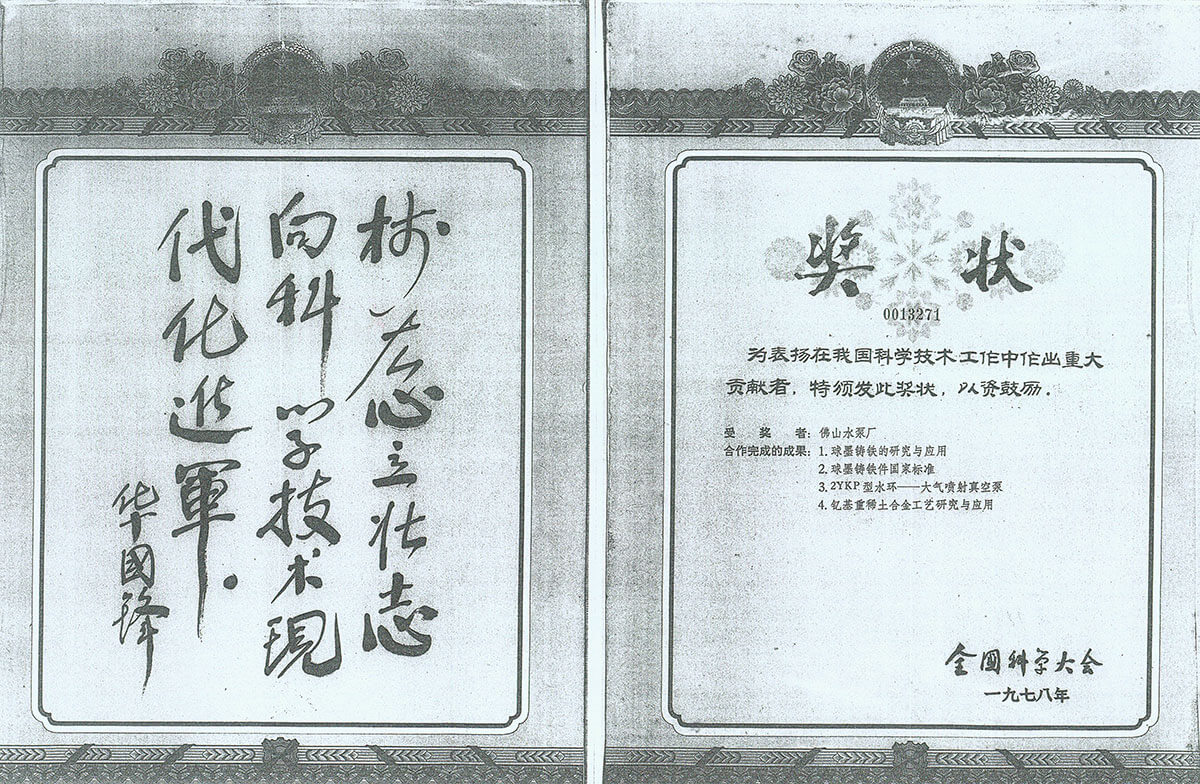 树雄心立壮志
向科学技术現
代化進軍。
华國锋
奖状
0013271
为表扬在我国科学技术工作中作出重大
贡献者，特颁发此奖状，以资鼓励．
受奖者：佛山水泵厂
合作完成的成果：1. 球墨铸铁的研究与应用
2. 球墨铸铁件国家标准
3. 2YKP型水环——大气喷射真空泵
4. 钇基重稀土合金工艺研究与应用
全国科学大会
一九七八年